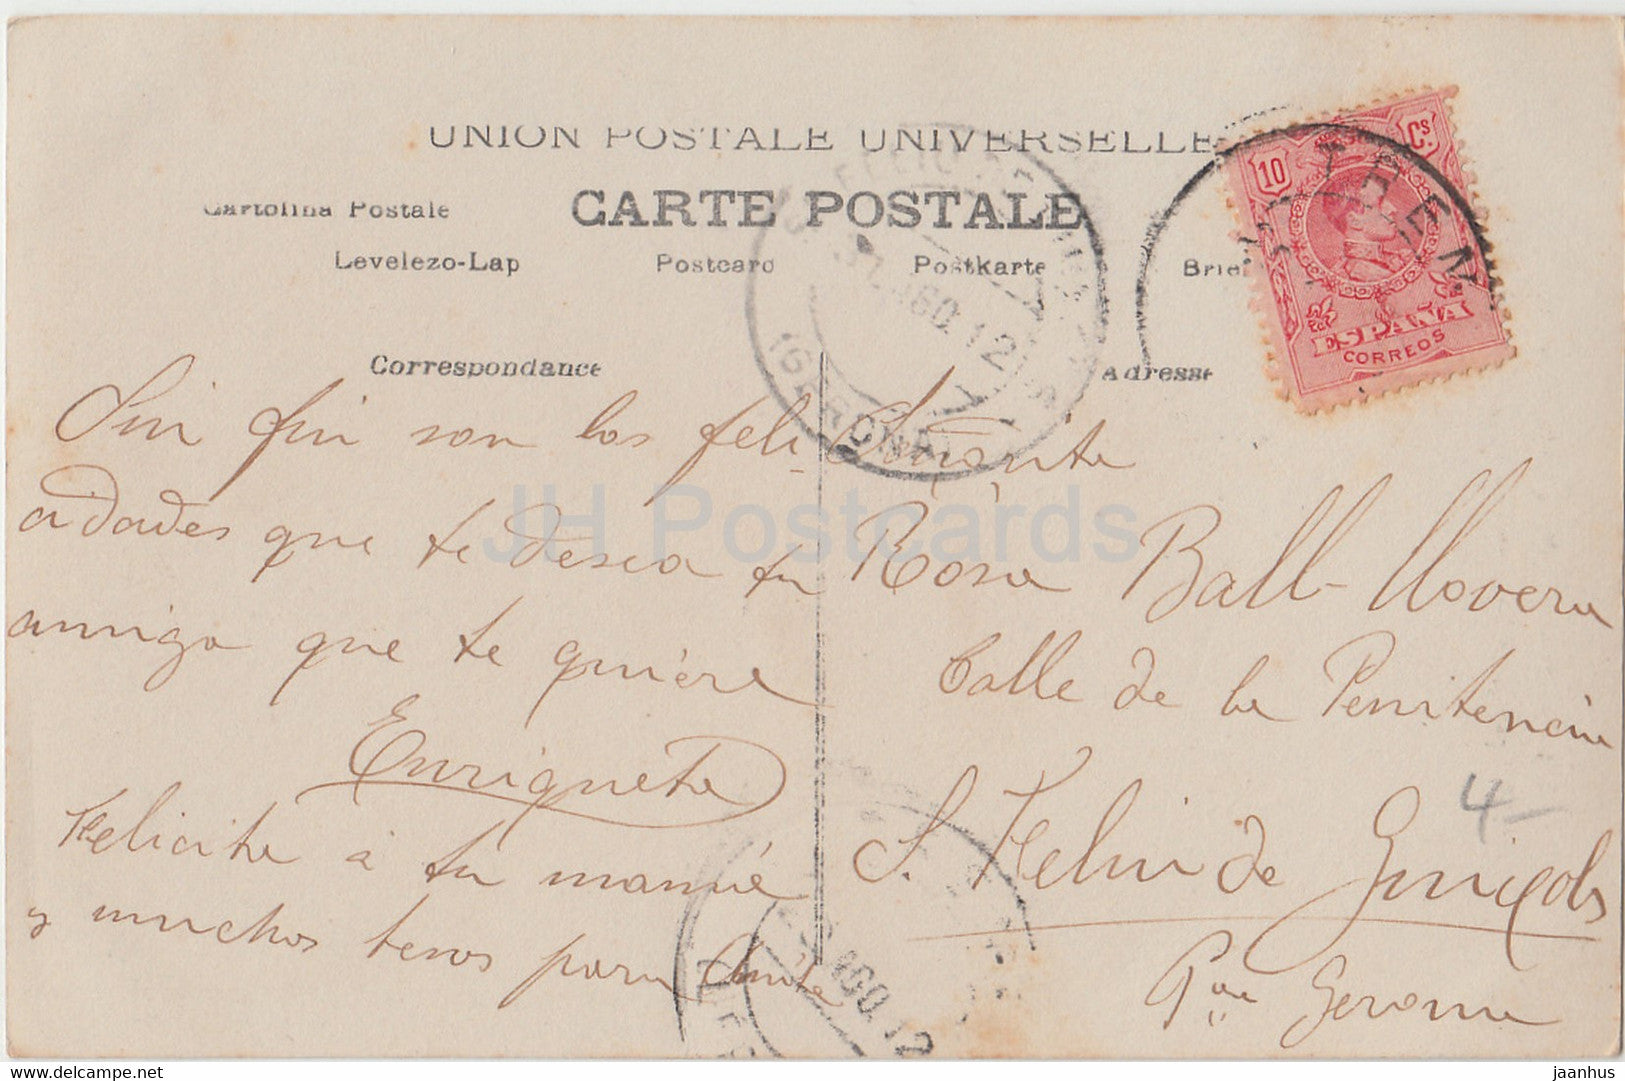 UNION POSTALE UNIVERSELLE
CARTE POSTALE
Cartolina Postale
Levelezo-Lap Postcard Postkarte Brie
Correspondance
Adresse
10 Cs.
ESPAÑA
CORREOS
GERONA
AGO. 12
Sin fin son las feli-
cidades que te desea tu
amiga que te quiere
Enriqueta
Felicite á tu mamá
y muchos besos para Anita
Señorita
Rosa Ball-llovera
Calle de la Penitencia
S. Feliu de Guixols
Pcia Gerona
4-
AGO. 12
JH Postcards
www.delcampe.net
jaanhus